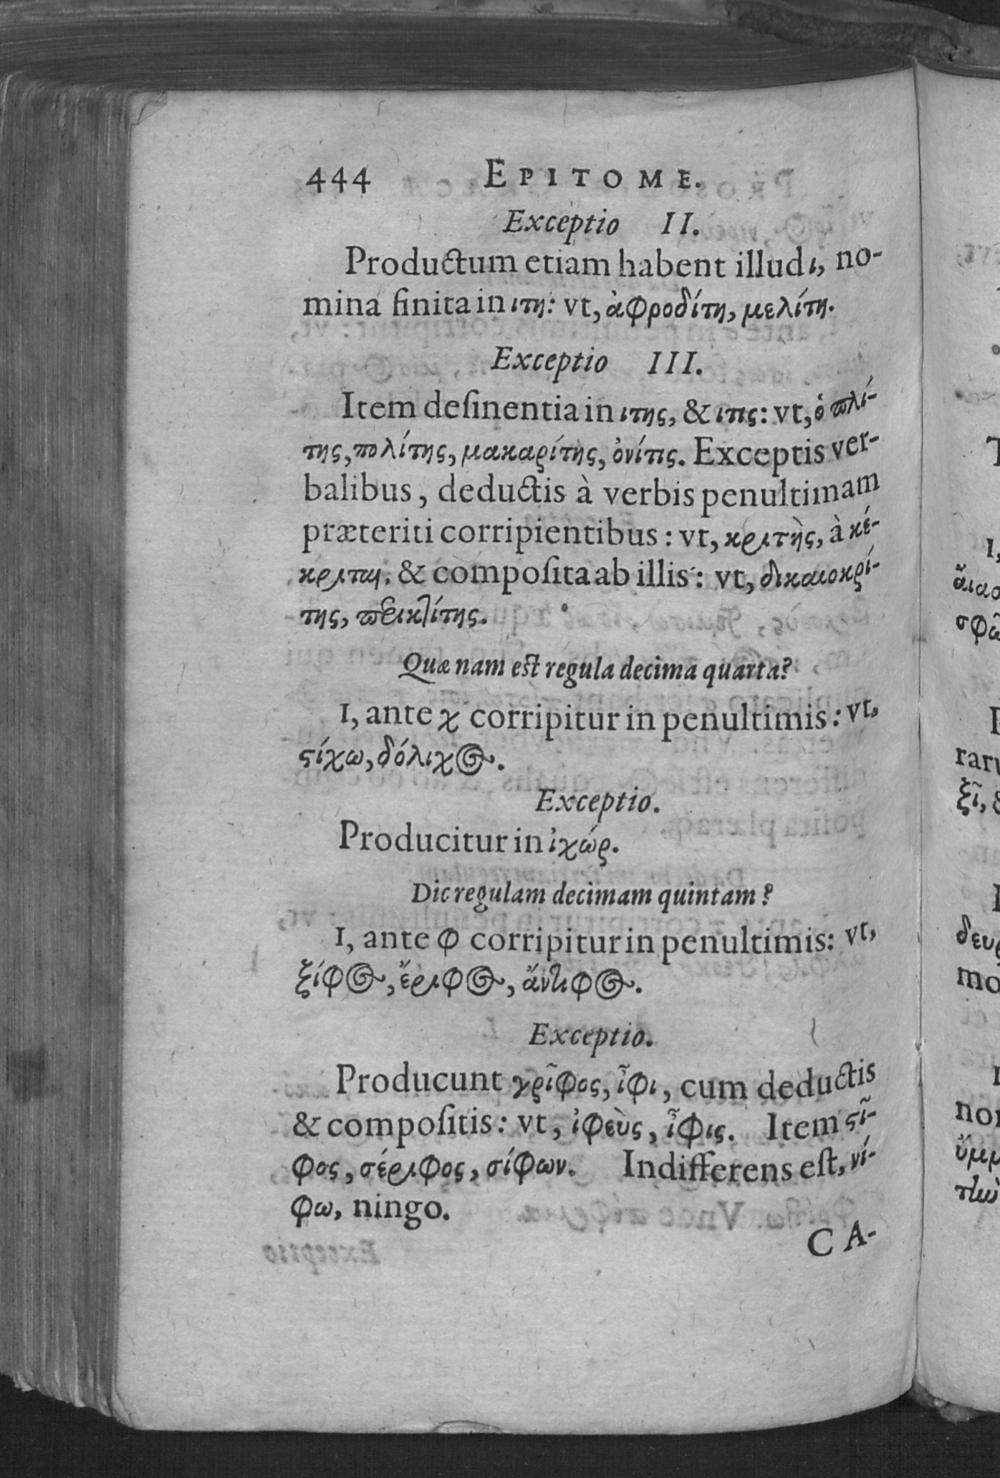 444 EPITOME.
Exceptio II.
Productum etiam habent illud ι, no-
mina finita in ιτη: vt, ἀφροδίτη, μελίτη.
Exceptio III.
Item desinentia in ιτης, & ιτις: vt, ὁπλί-
της, πολίτης, μακαρίτης, ὀνίτις. Exceptis ver-
balibus, deductis à verbis penultimam
præteriti corripientibus: vt, κριτὴς, à κέ-
κριται, & composita ab illis: vt, δικαιοκρί-
της, περικλίτης.
Quænam est regula decima quarta?
I, ante χ corripitur in penultimis: vt,
στίχω, δόλιχος.
Exceptio.
Producitur in ἰχώρ.
Dic regulam decimam quintam?
I, ante φ corripitur in penultimis: vt,
ξίφος, ἔριφος, ἄντιφος.
Exceptio.
Producunt γρῖφος, ἶφι, cum deductis
& compositis: vt, ἰφεὺς, ἶφις. Item στῖ-
φος, σέριφος, σίφων. Indifferens est, νί-
φω, ningo.
CA-
I,
ἄιας
σφω
raru
ξῖ, &
δευρ
mo
non
ὔμμ
τὼ